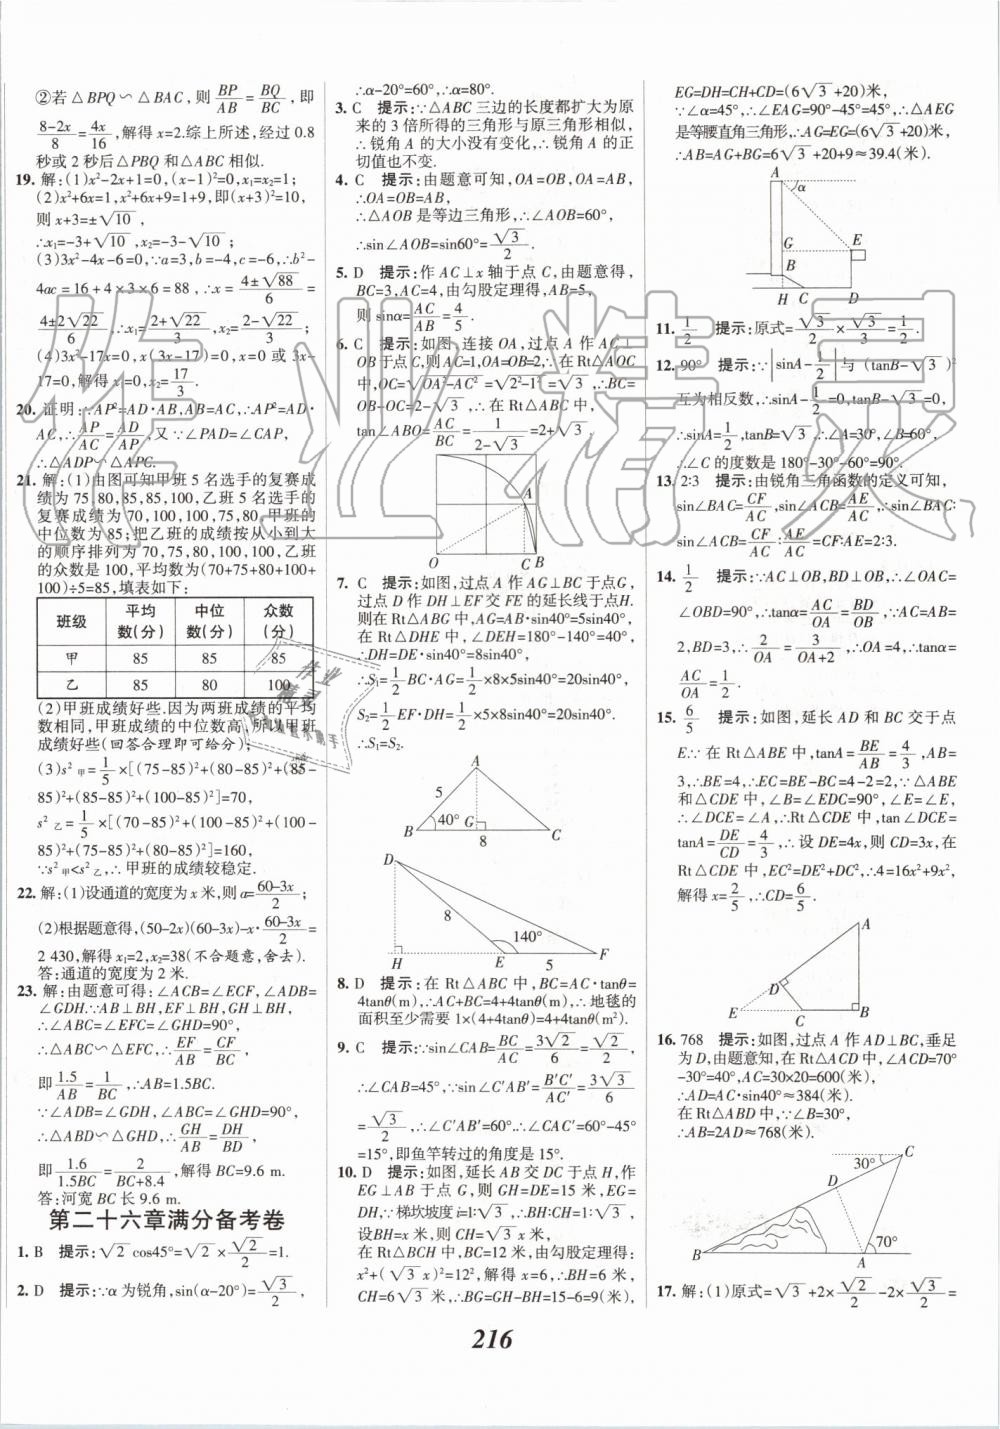 ②若△BPQ∽△BAC,则BP/AB=BQ/BC,即
8-2x/8=4x/16,解得x=2.综上所述,经过0.8
秒或2秒后△PBQ和△ABC相似.
19. 解:(1)x²-2x+1=0,(x-1)²=0,x₁=x₂=1;
(2)x²+6x=1,x²+6x+9=1+9,即(x+3)²=10,
则x+3=±√10,
∴x₁=-3+√10,x₂=-3-√10;
(3)3x²-4x-6=0,∵a=3,b=-4,c=-6,∴b²-
4ac=16+4×3×6=88,∴x=4±√88/6=
4±2√22/6,∴x₁=2+√22/3,x₂=2-√22/3;
(4)3x²-17x=0,x(3x-17)=0,x=0或3x-
17=0,解得x₁=0,x₂=17/3.
20. 证明:∵AP²=AD·AB,AB=AC,∴AP²=AD·
AC,∴AP/AC=AD/AP,又∵∠PAD=∠CAP,
∴△ADP∽△APC.
21. 解:(1)由图可知甲班5名选手的复赛成
绩为75,80,85,85,100,乙班5名选手的
复赛成绩为70,100,100,75,80,甲班的
中位数为85;把乙班的成绩按从小到大
的顺序排列为70,75,80,100,100,乙班
的众数是100,平均数为(70+75+80+100+
100)÷5=85,填表如下:
班级 平均数(分) 中位数(分) 众数(分)
甲 85 85 85
乙 85 80 100
(2)甲班成绩好些.因为两班成绩的平均
数相同,甲班成绩的中位数高,所以甲班
成绩好些(回答合理即可给分);
(3)s²甲=1/5×[(75-85)²+(80-85)²+(85-
85)²+(85-85)²+(100-85)²]=70,
s²乙=1/5×[(70-85)²+(100-85)²+(100-
85)²+(75-85)²+(80-85)²]=160,
∵s²甲<s²乙,∴甲班的成绩较稳定.
22. 解:(1)设通道的宽度为x米,则a=60-3x/2;
(2)根据题意得,(50-2x)(60-3x)-x·60-3x/2=
2 430,解得x₁=2,x₂=38(不合题意,舍去).
答:通道的宽度为2米.
23. 解:由题意可得:∠ACB=∠ECF,∠ADB=
∠GDH.∵AB⊥BH,EF⊥BH,GH⊥BH,
∴∠ABC=∠EFC=∠GHD=90°,
∴△ABC∽△EFC,∴EF/AB=CF/BC,
即1.5/AB=1/BC,∴AB=1.5BC.
∵∠ADB=∠GDH,∠ABC=∠GHD=90°,
∴△ABD∽△GHD,∴GH/AB=DH/BD,
即1.6/1.5BC=2/BC+8.4,解得BC=9.6 m.
答:河宽BC长9.6 m.
第二十六章满分备考卷
1. B 提示:√2cos45°=√2×√2/2=1.
2. D 提示:∵α为锐角,sin(α-20°)=√3/2,
∴α-20°=60°,∴α=80°.
3. C 提示:∵△ABC三边的长度都扩大为原
来的3倍所得的三角形与原三角形相似,
∴锐角A的大小没有变化,∴锐角A的正
切值也不变.
4. C 提示:由题意可知,OA=OB,OA=AB,
∴OA=OB=AB,
∴△AOB是等边三角形,∴∠AOB=60°,
∴sin∠AOB=sin60°=√3/2.
5. D 提示:作AC⊥x轴于点C,由题意得,
BC=3,AC=4,由勾股定理得,AB=5,
则sinα=AC/AB=4/5.
6. C 提示:如图,连接OA,过点A作AC⊥
OB于点C,则AC=1,OA=OB=2,∴在Rt△AOC
中,OC=√OA²-AC²=√2²-1²=√3,∴BC=
OB-OC=2-√3,∴在Rt△ABC中,
tan∠ABO=AC/BC=1/2-√3=2+√3.
A
O C B
7. C 提示:如图,过点A作AG⊥BC于点G,
过点D作DH⊥EF交FE的延长线于点H.
则在Rt△ABG中,AG=AB·sin40°=5sin40°,
在Rt△DHE中,∠DEH=180°-140°=40°,
∴DH=DE·sin40°=8sin40°,
∴S₁=1/2BC·AG=1/2×8×5sin40°=20sin40°,
S₂=1/2EF·DH=1/2×5×8sin40°=20sin40°.
∴S₁=S₂.
A
5
40° G
B 8 C
D
8
140°
H E 5 F
8. D 提示:在Rt△ABC中,BC=AC·tanθ=
4tanθ(m),∴AC+BC=4+4tanθ(m),∴地毯的
面积至少需要1×(4+4tanθ)=4+4tanθ(m²).
9. C 提示:∵sin∠CAB=BC/AC=3√2/6=√2/2,
∴∠CAB=45°,∵sin∠C′AB′=B′C′/AC′=3√3/6
=√3/2,∴∠C′AB′=60°.∴∠CAC′=60°-45°
=15°,即鱼竿转过的角度是15°.
10. D 提示:如图,延长AB交DC于点H,作
EG⊥AB于点G,则GH=DE=15米,EG=
DH,∵梯坎坡度i=1:√3,∴BH:CH=1:√3,
设BH=x米,则CH=√3x米,
在Rt△BCH中,BC=12米,由勾股定理得:
x²+(√3x)²=12²,解得x=6,∴BH=6米,
CH=6√3米,∴BG=GH-BH=15-6=9(米),
EG=DH=CH+CD=(6√3+20)米,
∵∠α=45°,∴∠EAG=90°-45°=45°,∴△AEG
是等腰直角三角形,∴AG=EG=(6√3+20)米,
∴AB=AG+BG=6√3+20+9≈39.4(米).
A
α
G E
B
H C D
11. 1/2 提示:原式=√3/2×√3/3=1/2.
12. 90° 提示:∵|sinA-1/2|与(tanB-√3)²
互为相反数,∴sinA-1/2=0,tanB-√3=0,
∴sinA=1/2,tanB=√3,∴∠A=30°,∠B=60°,
∴∠C的度数是180°-30°-60°=90°.
13. 2:3 提示:由锐角三角函数的定义可知,
sin∠BAC=CF/AC,sin∠ACB=AE/AC,∴sin∠BAC:
sin∠ACB=CF/AC:AE/AC=CF:AE=2:3.
14. 1/2 提示:∵AC⊥OB,BD⊥OB,∴∠OAC=
∠OBD=90°,∴tanα=AC/OA=BD/OB,∵AC=AB=
2,BD=3,∴2/OA=3/OA+2,∴OA=4,∴tanα=
AC/OA=1/2.
15. 6/5 提示:如图,延长AD和BC交于点
E.∵在Rt△ABE中,tanA=BE/AB=4/3,AB=
3,∴BE=4,∴EC=BE-BC=4-2=2,∵△ABE
和△CDE中,∠B=∠EDC=90°,∠E=∠E,
∴∠DCE=∠A,∴Rt△CDE中,tan∠DCE=
tanA=DE/CD=4/3,∴设DE=4x,则CD=3x,在
Rt△CDE中,EC²=DE²+CD²,∴4=16x²+9x²,
解得x=2/5,∴CD=6/5.
A
D
E C B
16. 768 提示:如图,过点A作AD⊥BC,垂足
为D,由题意知,在Rt△ACD中,∠ACD=70°
-30°=40°,AC=30×20=600(米),
∴AD=AC·sin40°≈384(米).
在Rt△ABD中,∵∠B=30°,
∴AB=2AD≈768(米).
C
30°
D
70°
B A
17. 解:(1)原式=√3+2×√2/2-2×√3/2=
216